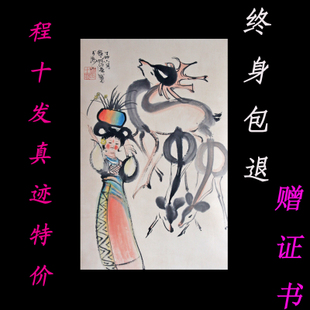 程十发真迹特价
终身包退
赠证书